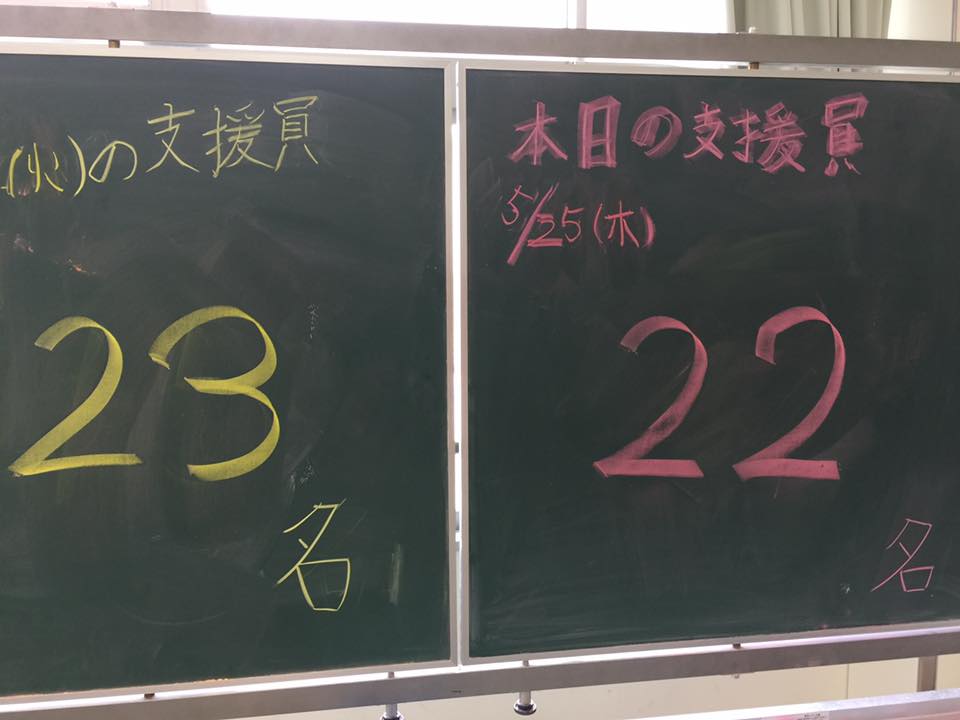 (火)の支援員
23
名
本日の支援員
5/25(木)
22
名